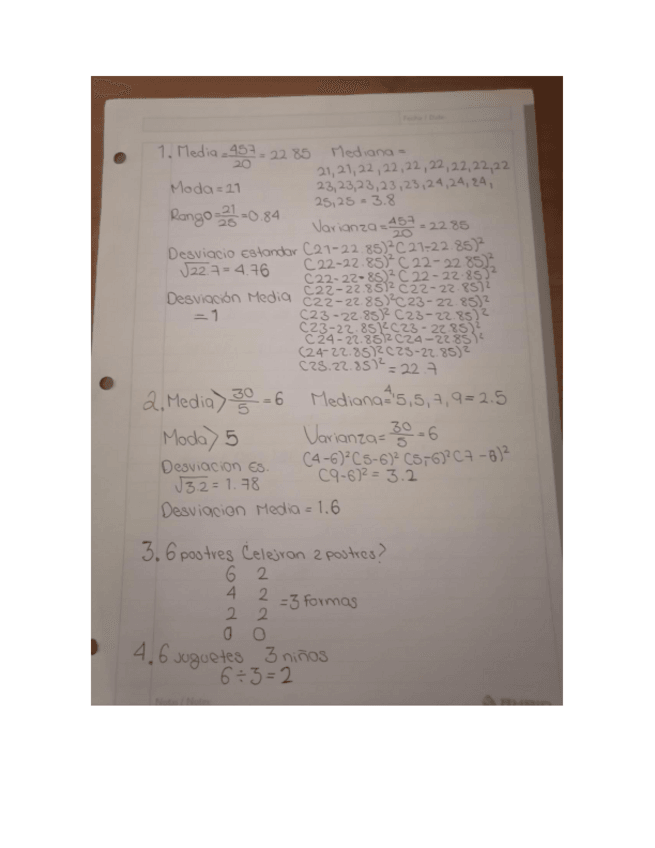 Fecha / Date
1. Media = 457/20 = 22.85 Mediana =
21, 21, 22, 22, 22, 22, 22, 22, 22
23, 23, 23, 23, 23, 24, 24, 24,
25, 25 = 3.8
Moda = 21
Rango = 21/25 = 0.84
Varianza = 457/20 = 22.85
Desviacio Estandar
√22.7 = 4.76
Desviación Media
= 1
(21-22.85)² (21-22.85)²
(22-22.85)² (22-22.85)²
(22-22.85)² (22-22.85)²
(22-22.85)² (22-22.85)²
(22-22.85)² (23-22.85)²
(23-22.85)² (23-22.85)²
(23-22.85)² (23-22.85)²
(24-22.85)² (24-22.85)²
(24-22.85)² (25-22.85)²
(25.22.85)² = 22.7
2. Media > 30/5 = 6 Mediana = 4, 5, 5, 7, 9 = 2.5
Moda > 5 Varianza = 30/5 = 6
Desviacion Es.
√3.2 = 1.78
(4-6)² (5-6)² (5-6)² (7-6)²
(9-6)² = 3.2
Desviacion Media = 1.6
3. 6 postres Celejran 2 postres?
6 2
4 2
2 2
0 0
= 3 formas
4. 6 juguetes 3 niños
6 ÷ 3 = 2
Nota / Notes